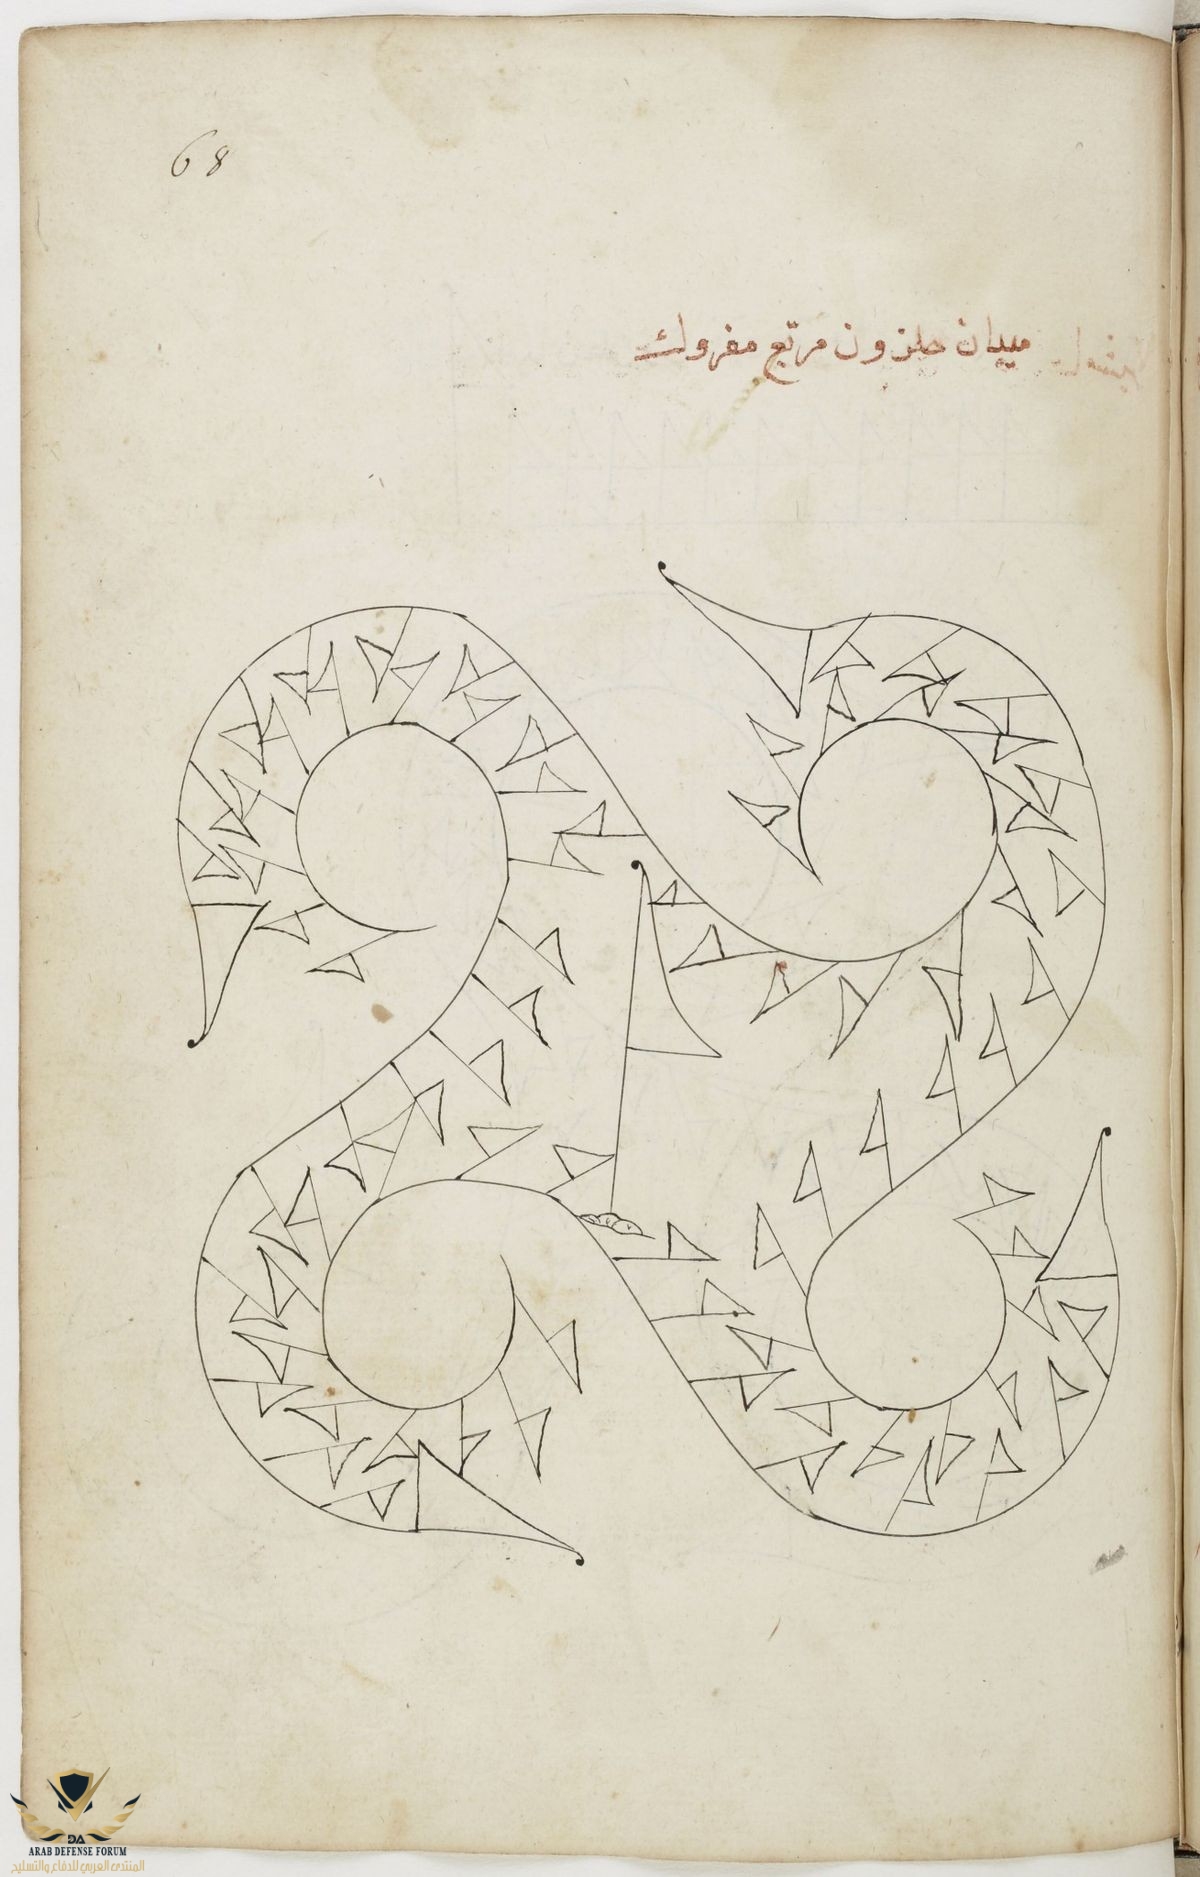 68
ميدان حلزون مربع مفروك
ARAB DEFENSE FORUM
المنتدى العربي للدفاع والتسليح